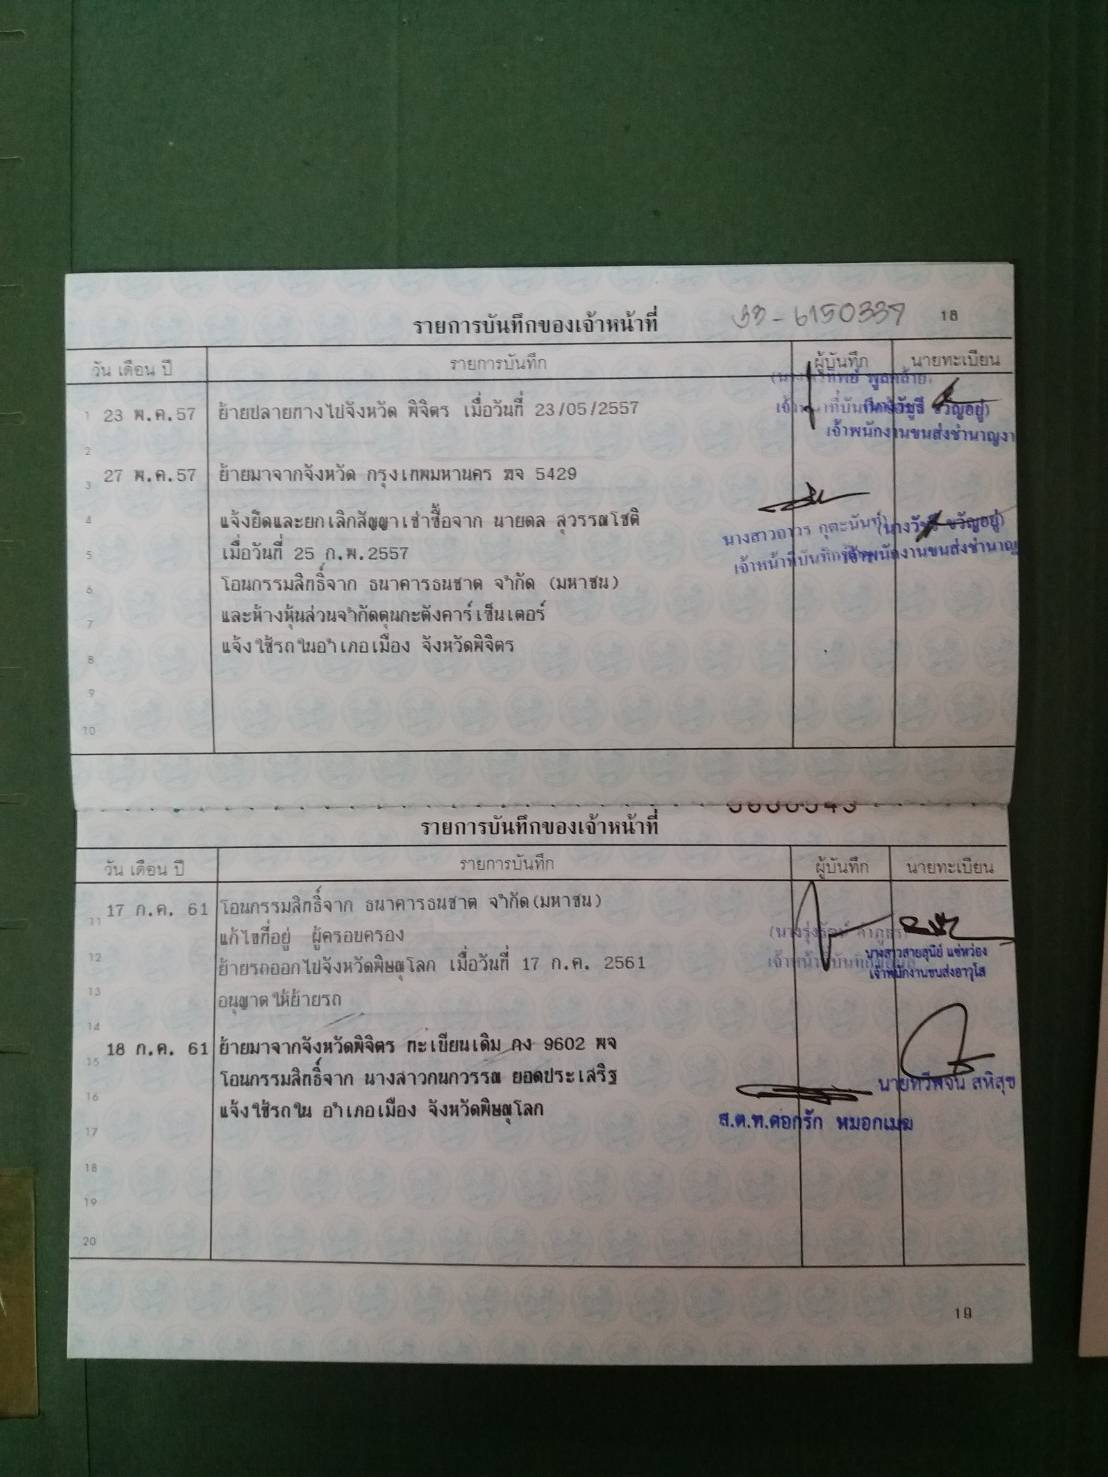 รายการบันทึกของเจ้าหน้าที่ 18
วัน เดือน ปี รายการบันทึก ผู้บันทึก นายทะเบียน
1 23 พ.ค.57 ย้ายปลายทางไปจังหวัด พิจิตร เมื่อวันที่ 23/05/2557
เจ้าพนักงานขนส่งชำนาญงา
2
3 27 พ.ค.57 ย้ายมาจากจังหวัด กรุงเทพมหานคร ฆจ 5429
4 แจ้งยึดและยกเลิกสัญญาเช่าซื้อจาก นายดล สุวรรณโชติ
นางสาวถาวร กุตะนันท์ (นางวัชรี ขวัญอยู่)
5 เมื่อวันที่ 25 ก.พ.2557
เจ้าหน้าที่บันทึก เจ้าพนักงานขนส่งชำนาญ
6 โอนกรรมสิทธิ์จาก ธนาคารธนชาต จำกัด (มหาชน)
7 และห้างหุ้นส่วนจำกัดตุนกะตังคาร์เซ็นเตอร์
8 แจ้งใช้รถในอำเภอเมือง จังหวัดพิจิตร
9
10
รายการบันทึกของเจ้าหน้าที่
วัน เดือน ปี รายการบันทึก ผู้บันทึก นายทะเบียน
11 17 ก.ค. 61 โอนกรรมสิทธิ์จาก ธนาคารธนชาต จำกัด(มหาชน)
12 แก้ไขที่อยู่ ผู้ครอบครอง
นางสาวสายสุนีย์ แซ่หว่อง
13 ย้ายรถออกไปจังหวัดพิษณุโลก เมื่อวันที่ 17 ก.ค. 2561
เจ้าพนักงานขนส่งอาวุโส
14 อนุญาตให้ย้ายรถ
15 18 ก.ค. 61 ย้ายมาจากจังหวัดพิจิตร ทะเบียนเดิม กง 9602 พจ
16 โอนกรรมสิทธิ์จาก นางสาวกนกวรรณ ยอดประเสริฐ
นายทวีพจน์ สหิสุข
17 แจ้งใช้รถใน อำเภอเมือง จังหวัดพิษณุโลก
ส.ต.ท.ดอกรัก หมอกเมฆ
18
19
20
19